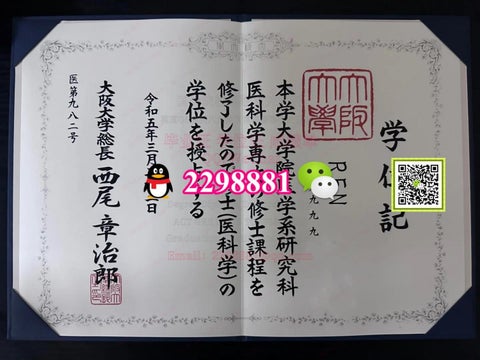 学位記
大阪大學
REN
九九九
本学大学院医学系研究科
医科学専攻修士課程を
修了したので修士(医科学)の
学位を授与する
令和五年三月
日
大阪大学総長 西尾 章治郎
医第九八二号
2298881